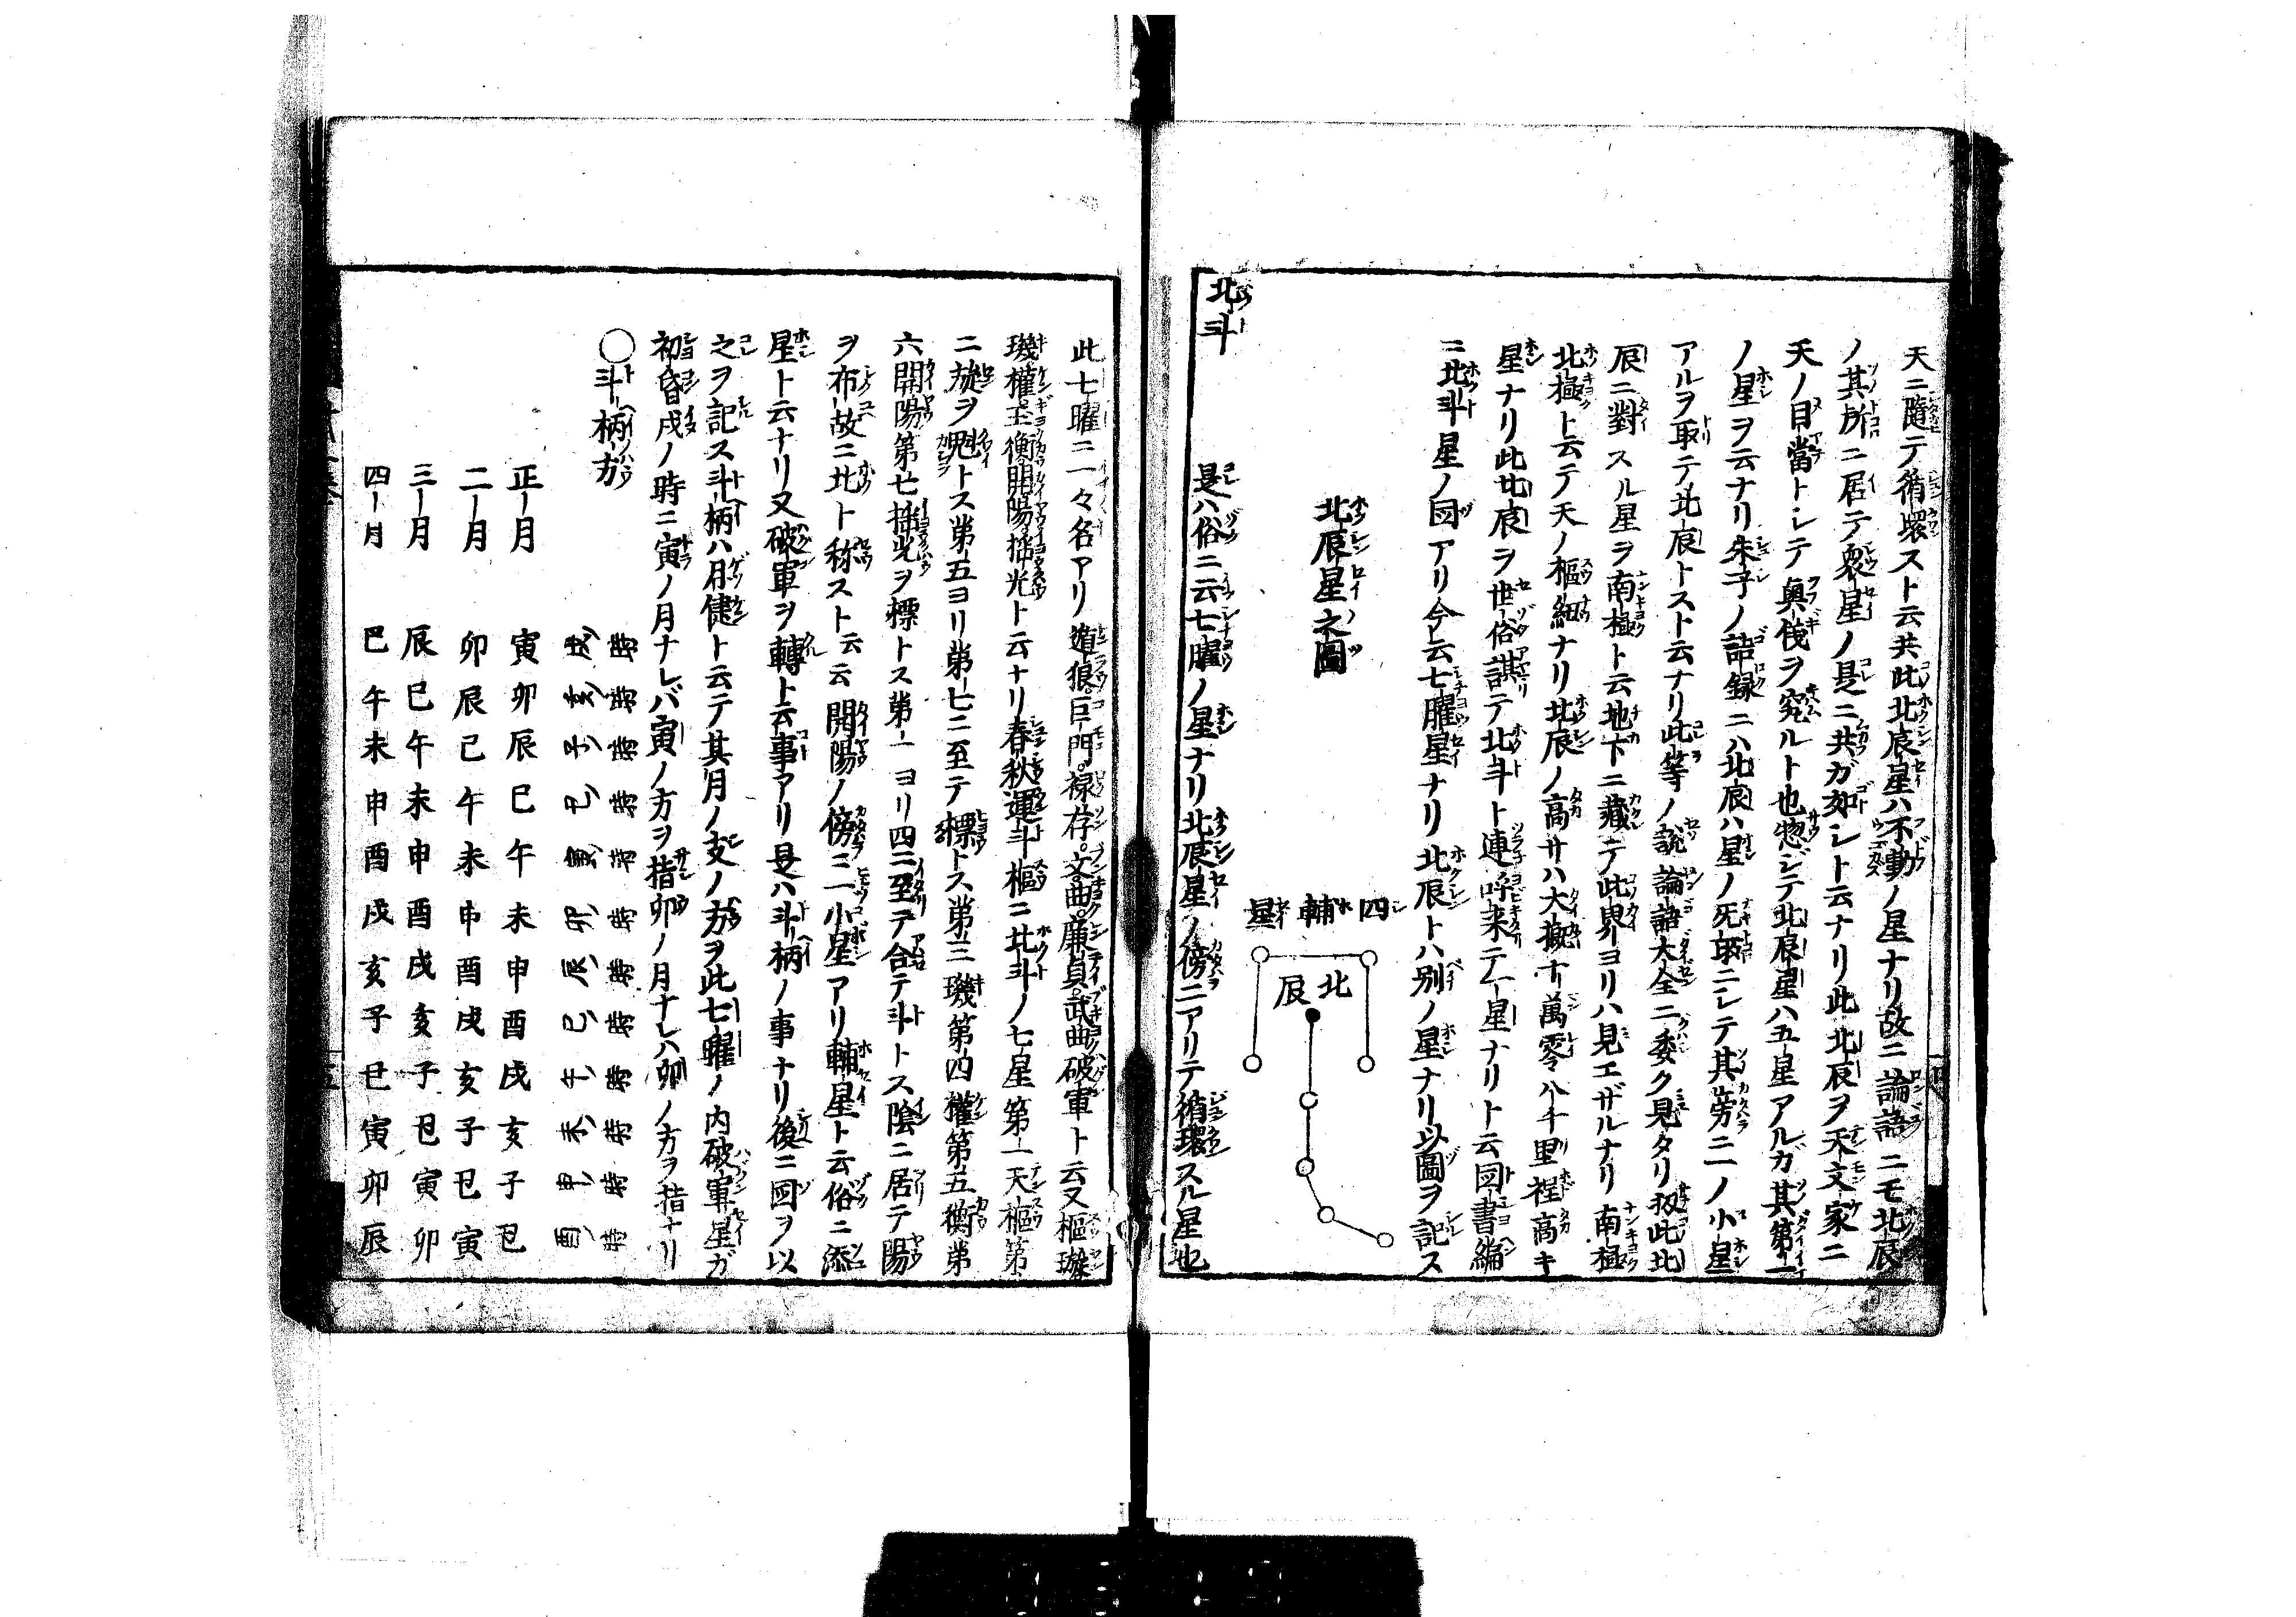 天ニ隨テ循環スト云共此北辰星ハ不動ノ星ナリ故ニ論語ニモ北辰
ノ其所ニ居テ衆星ノ是ニ共ガ如シト云ナリ此北辰ヲ天文家ニ
天ノ目當トシテ奥儀ヲ究ルト也惣ジテ北辰星ハ五星アルガ其第一
ノ星ヲ云ナリ朱子ノ語録ニハ北辰ハ星ノ死取ニシテ其旁ニ一ノ小星
アルヲ取テ北辰トスト云ナリ此等ノ説論語大全ニ委ク見タリ扨此北
辰ニ對スル星ヲ南極ト云地下ニ藏テ此界ヨリハ見エザルナリ南極
北極ト云テ天ノ樞紐ナリ北辰ノ高サハ大擬十萬零八千里程高キ
星ナリ此北辰ヲ世俗誤テ北斗ト連呼来テ一星ナリト云図書編
ニ北斗星ノ図アリ今云七曜星ナリ北辰トハ別ノ星ナリ以圖ヲ記ス
北辰星之圖
四輔星
北辰
北斗
是ハ俗ニ云七曜ノ星ナリ北辰星ノ傍ニアリテ循環スル星也
此七曜ニ一々名アリ貪狼。巨門。禄存。文曲。廉貞。武曲。破軍ト云又樞璇
璣權玉衡開陽揺光ト云ナリ春秋運斗樞ニ北斗ノ七星第一天樞第
二璇ヲ魁トス第五ヨリ第七ニ至テ標トス第三璣第四權第五衡第
六開陽第七揺光ヲ標トス第一ヨリ四ニ至テ合テ斗トス陰ニ居テ陽
ヲ布故ニ北ト称スト云云開陽ノ傍ニ一小星アリ輔星ト云俗ニ添
星ト云ナリ又破軍ヲ轉ト云事アリ是ハ斗柄ノ事ナリ後ニ図ヲ以
之ヲ記ス斗柄ハ月健ト云テ其月ノ支ノ方ヲ此七曜ノ内破軍星ガ
初昏戌ノ時ニ寅ノ月ナレバ寅ノ方ヲ指卯ノ月ナレハ卯ノ方ヲ指ナリ
○斗柄方
時時時時時時時時時時時時
戌亥子丑寅卯辰巳午未申酉
正月 寅卯辰巳午未申酉戌亥子丑
二月 卯辰巳午未申酉戌亥子丑寅
三月 辰巳午未申酉戌亥子丑寅卯
四月 巳午未申酉戌亥子丑寅卯辰